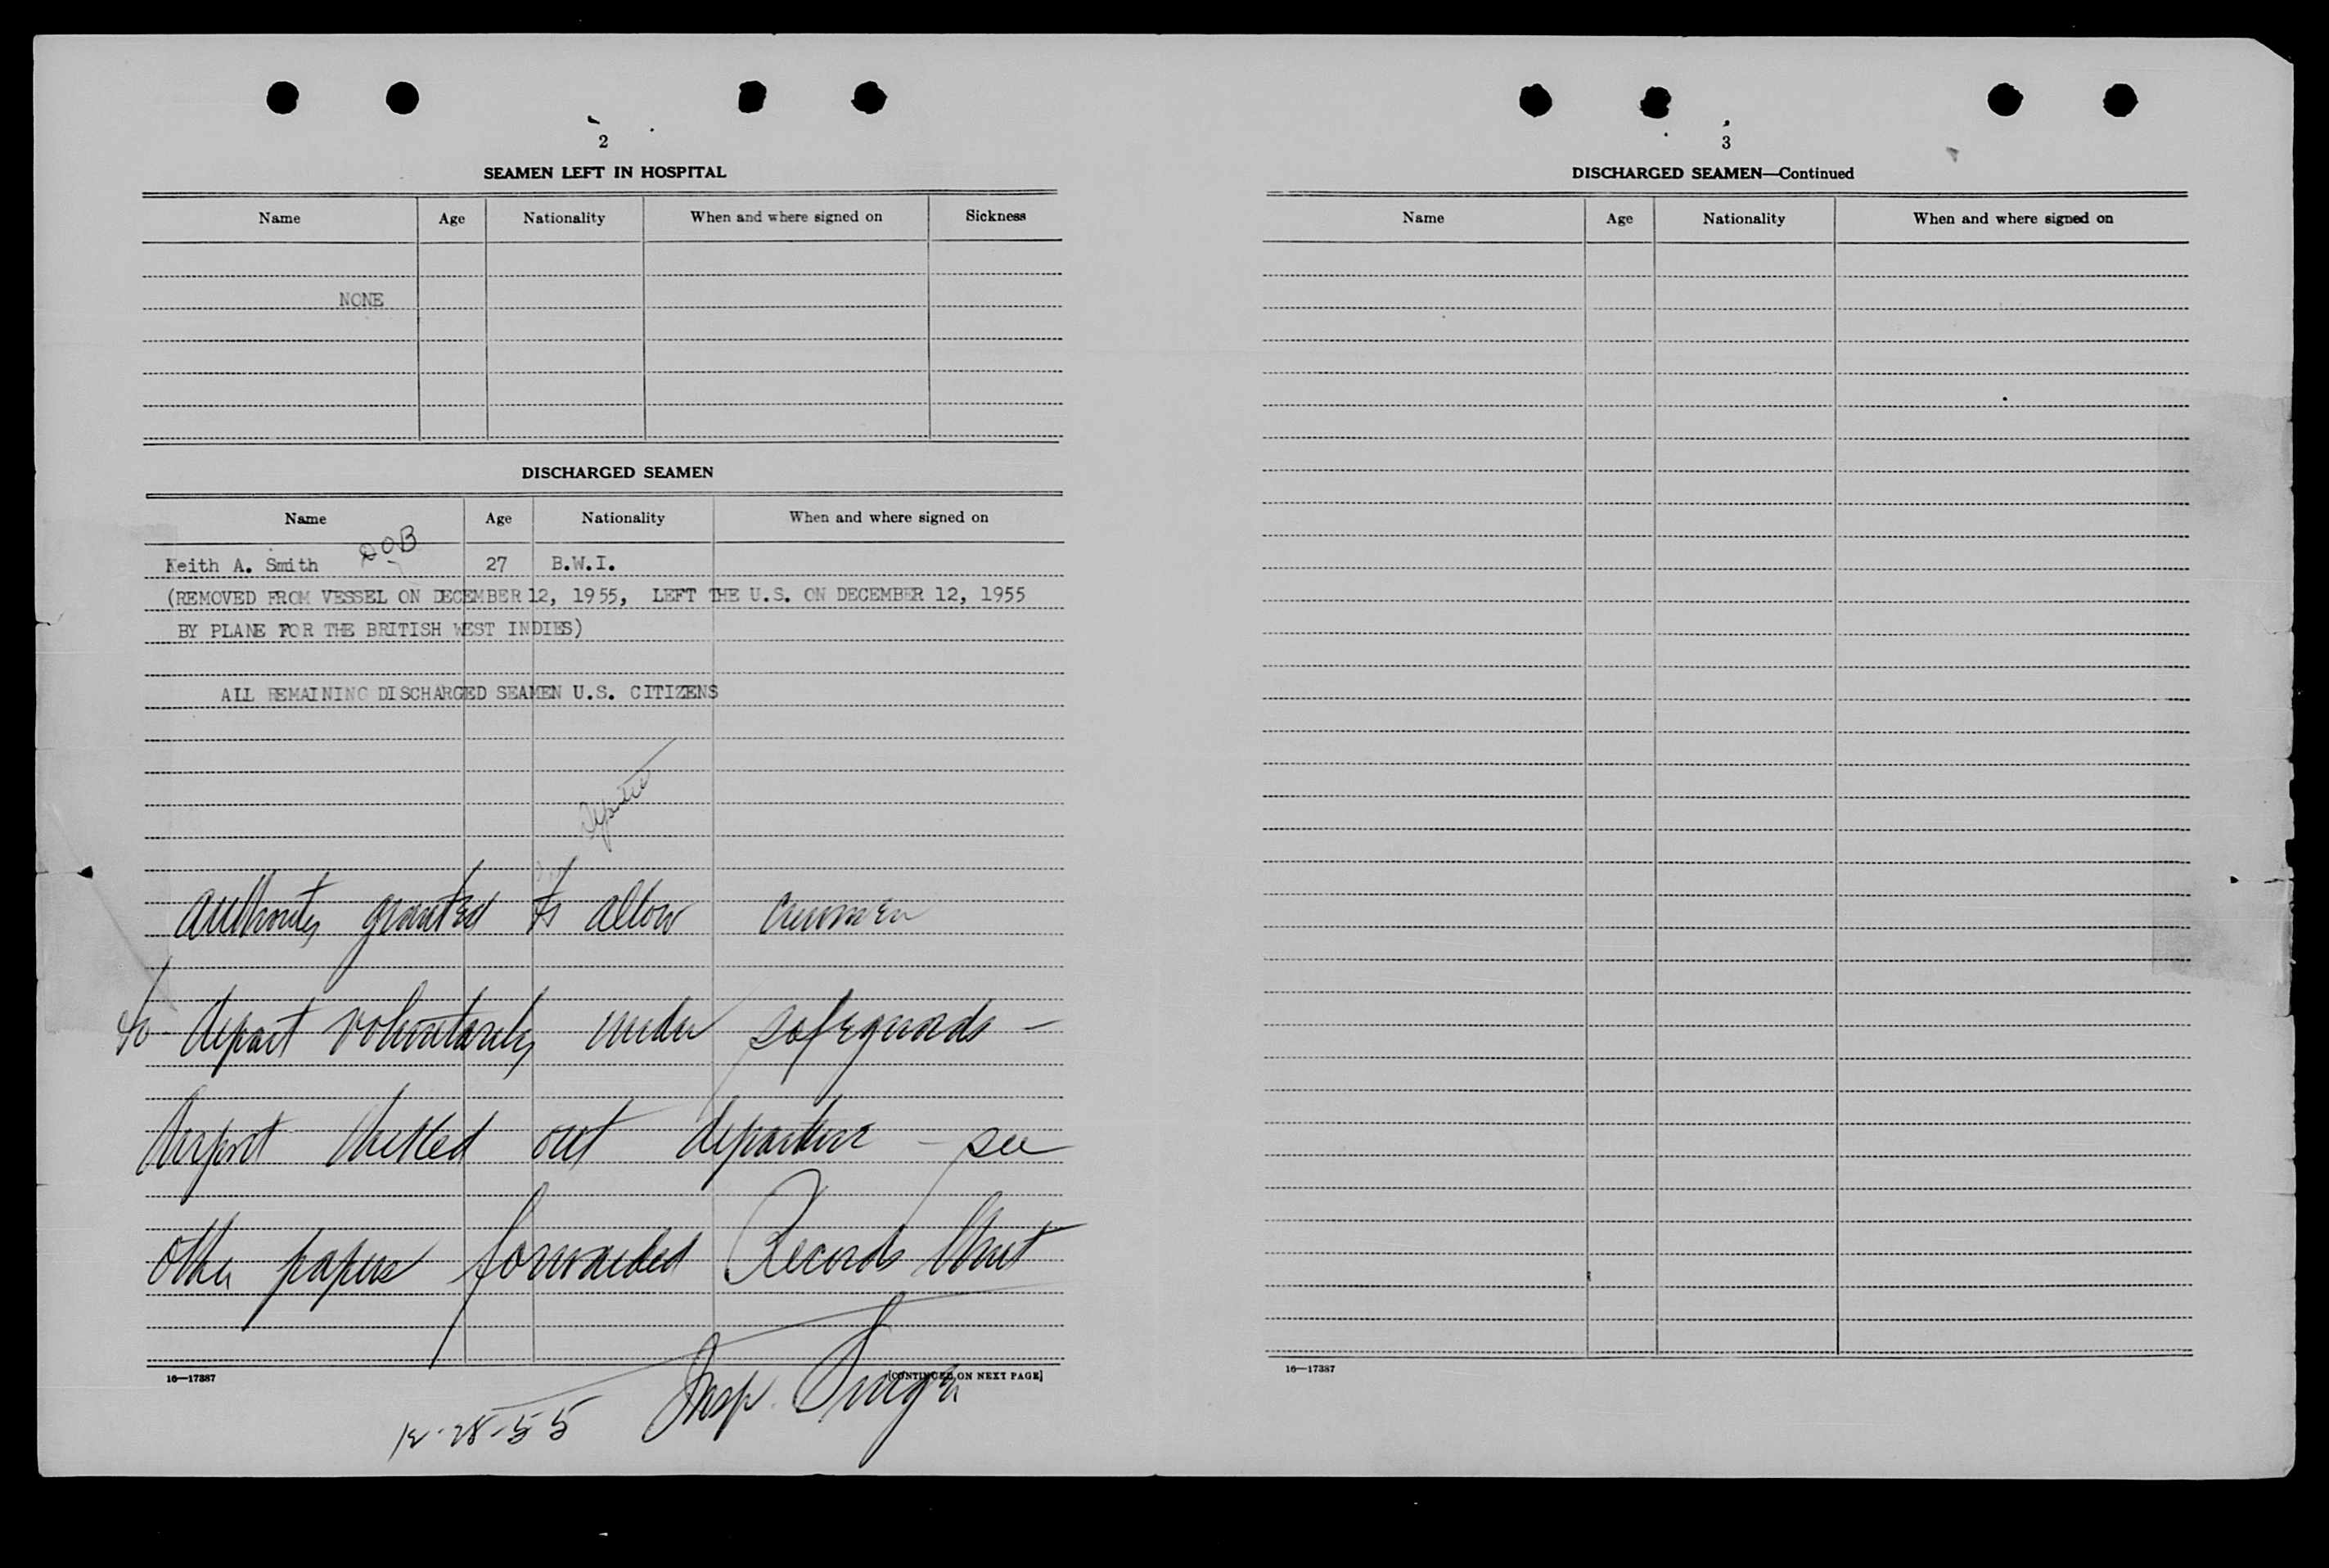 2
SEAMEN LEFT IN HOSPITAL
Name Age Nationality When and where signed on Sickness
NONE
DISCHARGED SEAMEN
Name Age Nationality When and where signed on
DOB
Keith A. Smith 27 B.W.I.
(REMOVED FROM VESSEL ON DECEMBER 12, 1955, LEFT THE U.S. ON DECEMBER 12, 1955
BY PLANE FOR THE BRITISH WEST INDIES)
ALL REMAINING DISCHARGED SEAMEN U.S. CITIZENS
Authority granted to allow crewmen
to depart voluntarily under safeguards -
Airport checked out departure - see
other papers forwarded Records Unit
16—17387 [CONTINUED ON NEXT PAGE]
12-28-55 Insp.
3
DISCHARGED SEAMEN—Continued
Name Age Nationality When and where signed on
16—17387